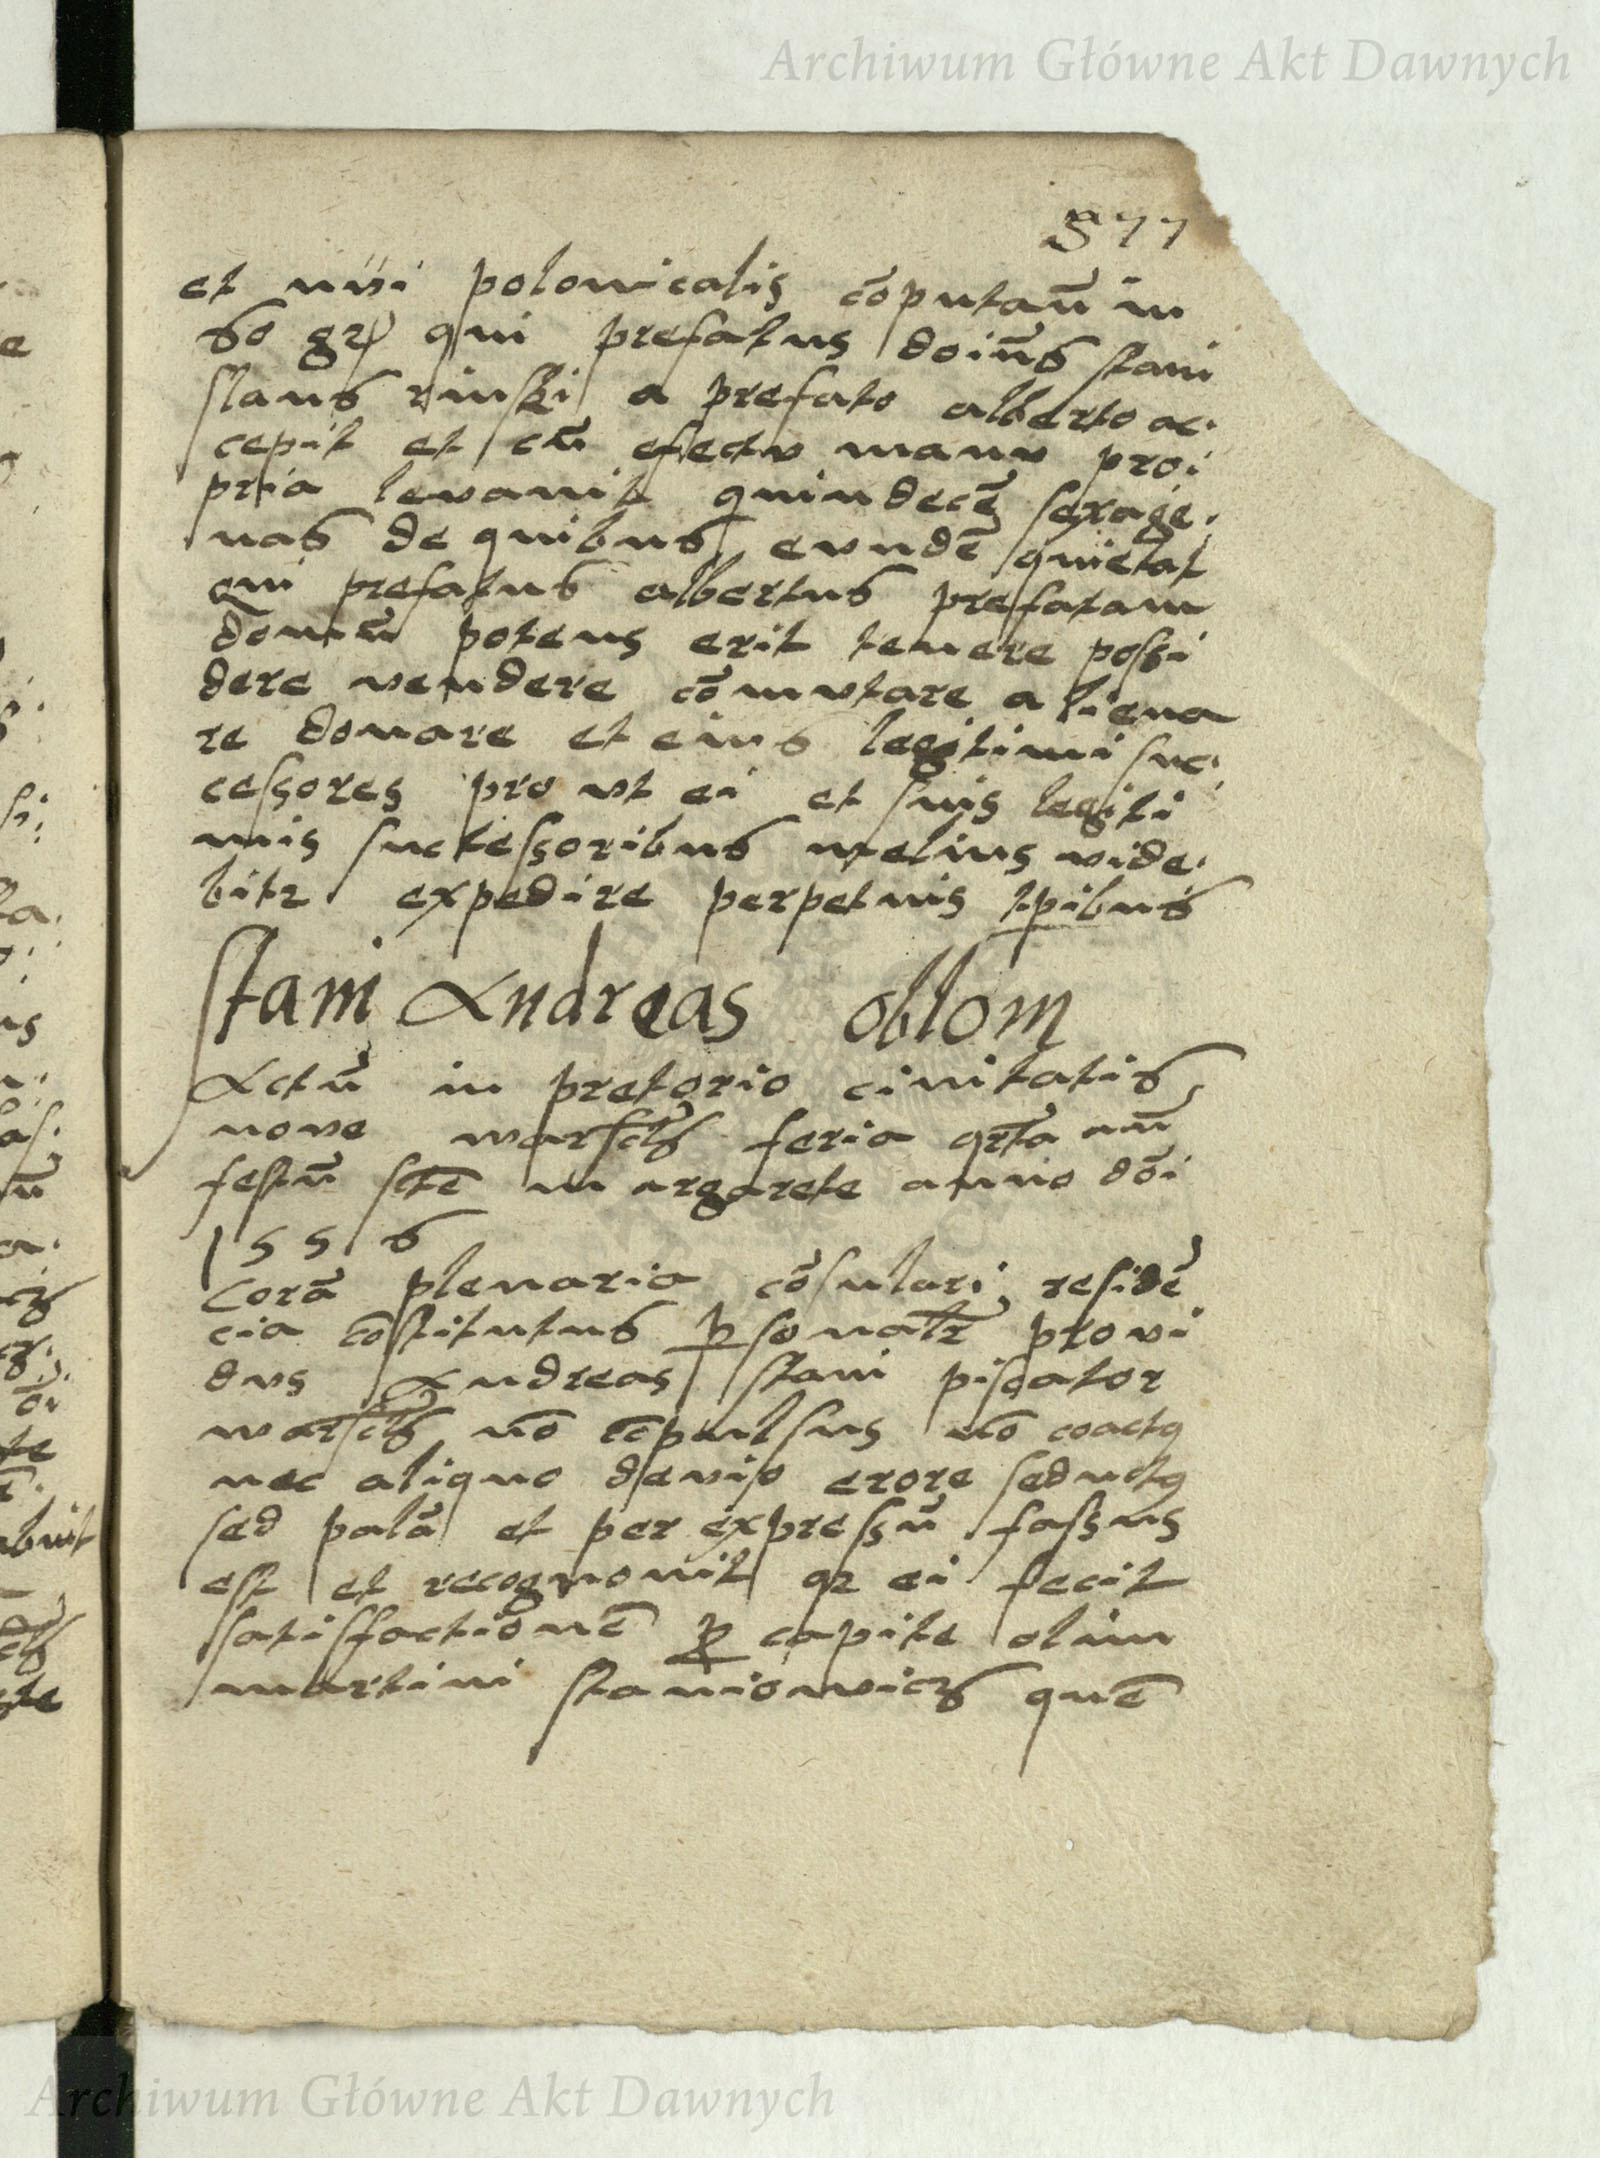 Archiwum Główne Akt Dawnych
577
et nūi polonicalis cōputañ in
60 gr qui prefatus doiñs stani
slaus rinski a prefato alberto ac.
cepit et cū efectv manv proi
pria levauit quindecē sexagē.
nas de quibus evndē quietat
qui prefatus albertus prefatam
domū potens erit tenere possi
dere vendere cōmvtare aliena
re donare et eius legitimi suc.
cessores pro vt ei et suis legiti
mis suctessoribus melius vide.
bitr expedire perpetuis tpibus
Stani Andreas oblom
Actū in pretorio ciuitatis
nove warschs feria qrta añ
festū scte margarete anno dōi
1556
Corā plenaria cōsulari residē
cia cōstitutus psonalr provi
dvs Andreas stani piscator
warschs nō cōpulsus nō coactq
nec aliquo devio erore seductq
sed palā et per expressū fassus
est et recognovit qr ei fecit
satisfactionē p capite olim
martini staniowicz quē
Archiwum Główne Akt Dawnych